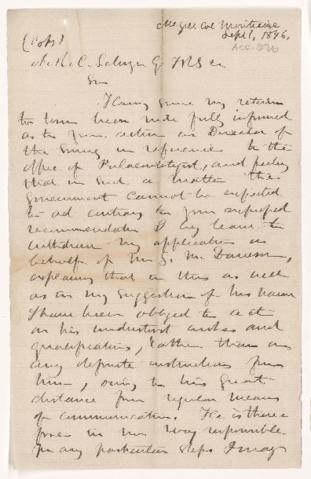 McGill Col Montreal
Sept 1, 1896,
ACC. 220
(Copy)
A. R. C. Selwyn Esq FRS &c
Sir
Having since my return
to town been made fully informed
as to your action as Director of
the Survey in reference to the
office of Palaeontologist, and feeling
that in such a matter the
Government cannot be expected
to act contrary to your expressed
recommendation I beg leave to
withdraw my application on
behalf of Mr G. M. Dawson,
explaining that in this as well
as in my suggestion of his name
I have been obliged to act
on his understood wishes and
qualifications, rather than on
any definite instructions from
him, owing to his great
distance from regular means
of communication. He is there
fore in no way responsible
for any particular steps I may